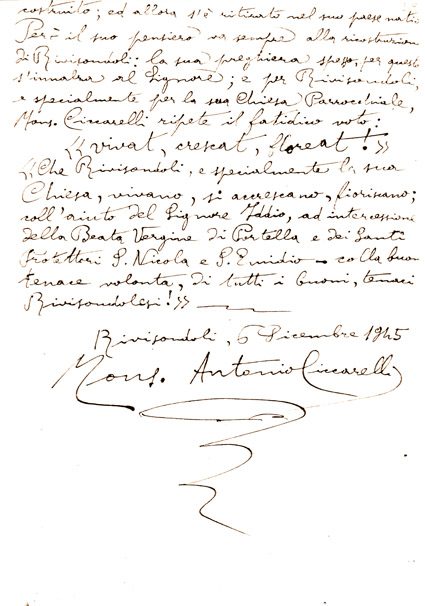 costruito; ed allora s'è ritirato nel suo paese natio.
Però il suo pensiero va sempre alla ricostruzione
di Rivisondoli: la sua preghiera spesso, per questo
s'innalza al Signore; e per Rivisondoli,
e specialmente per la sua Chiesa Parrocchiale,
Mons. Ciccarelli ripete il fatidico voto:
«vivat, crescat, floreat!»
«Che Rivisondoli, e specialmente la sua
Chiesa, vivano, si accrescano, fioriscano;
coll'aiuto del Signore Iddio, ad intercessione
della Beata Vergine di Portella e dei Santi
Protettori S. Nicola e S. Emidio - colla buona
tenace volontà, di tutti i buoni, tenaci
Rivisondolesi!»
Rivisondoli, 6 Dicembre 1945
Mons. Antonio Ciccarelli